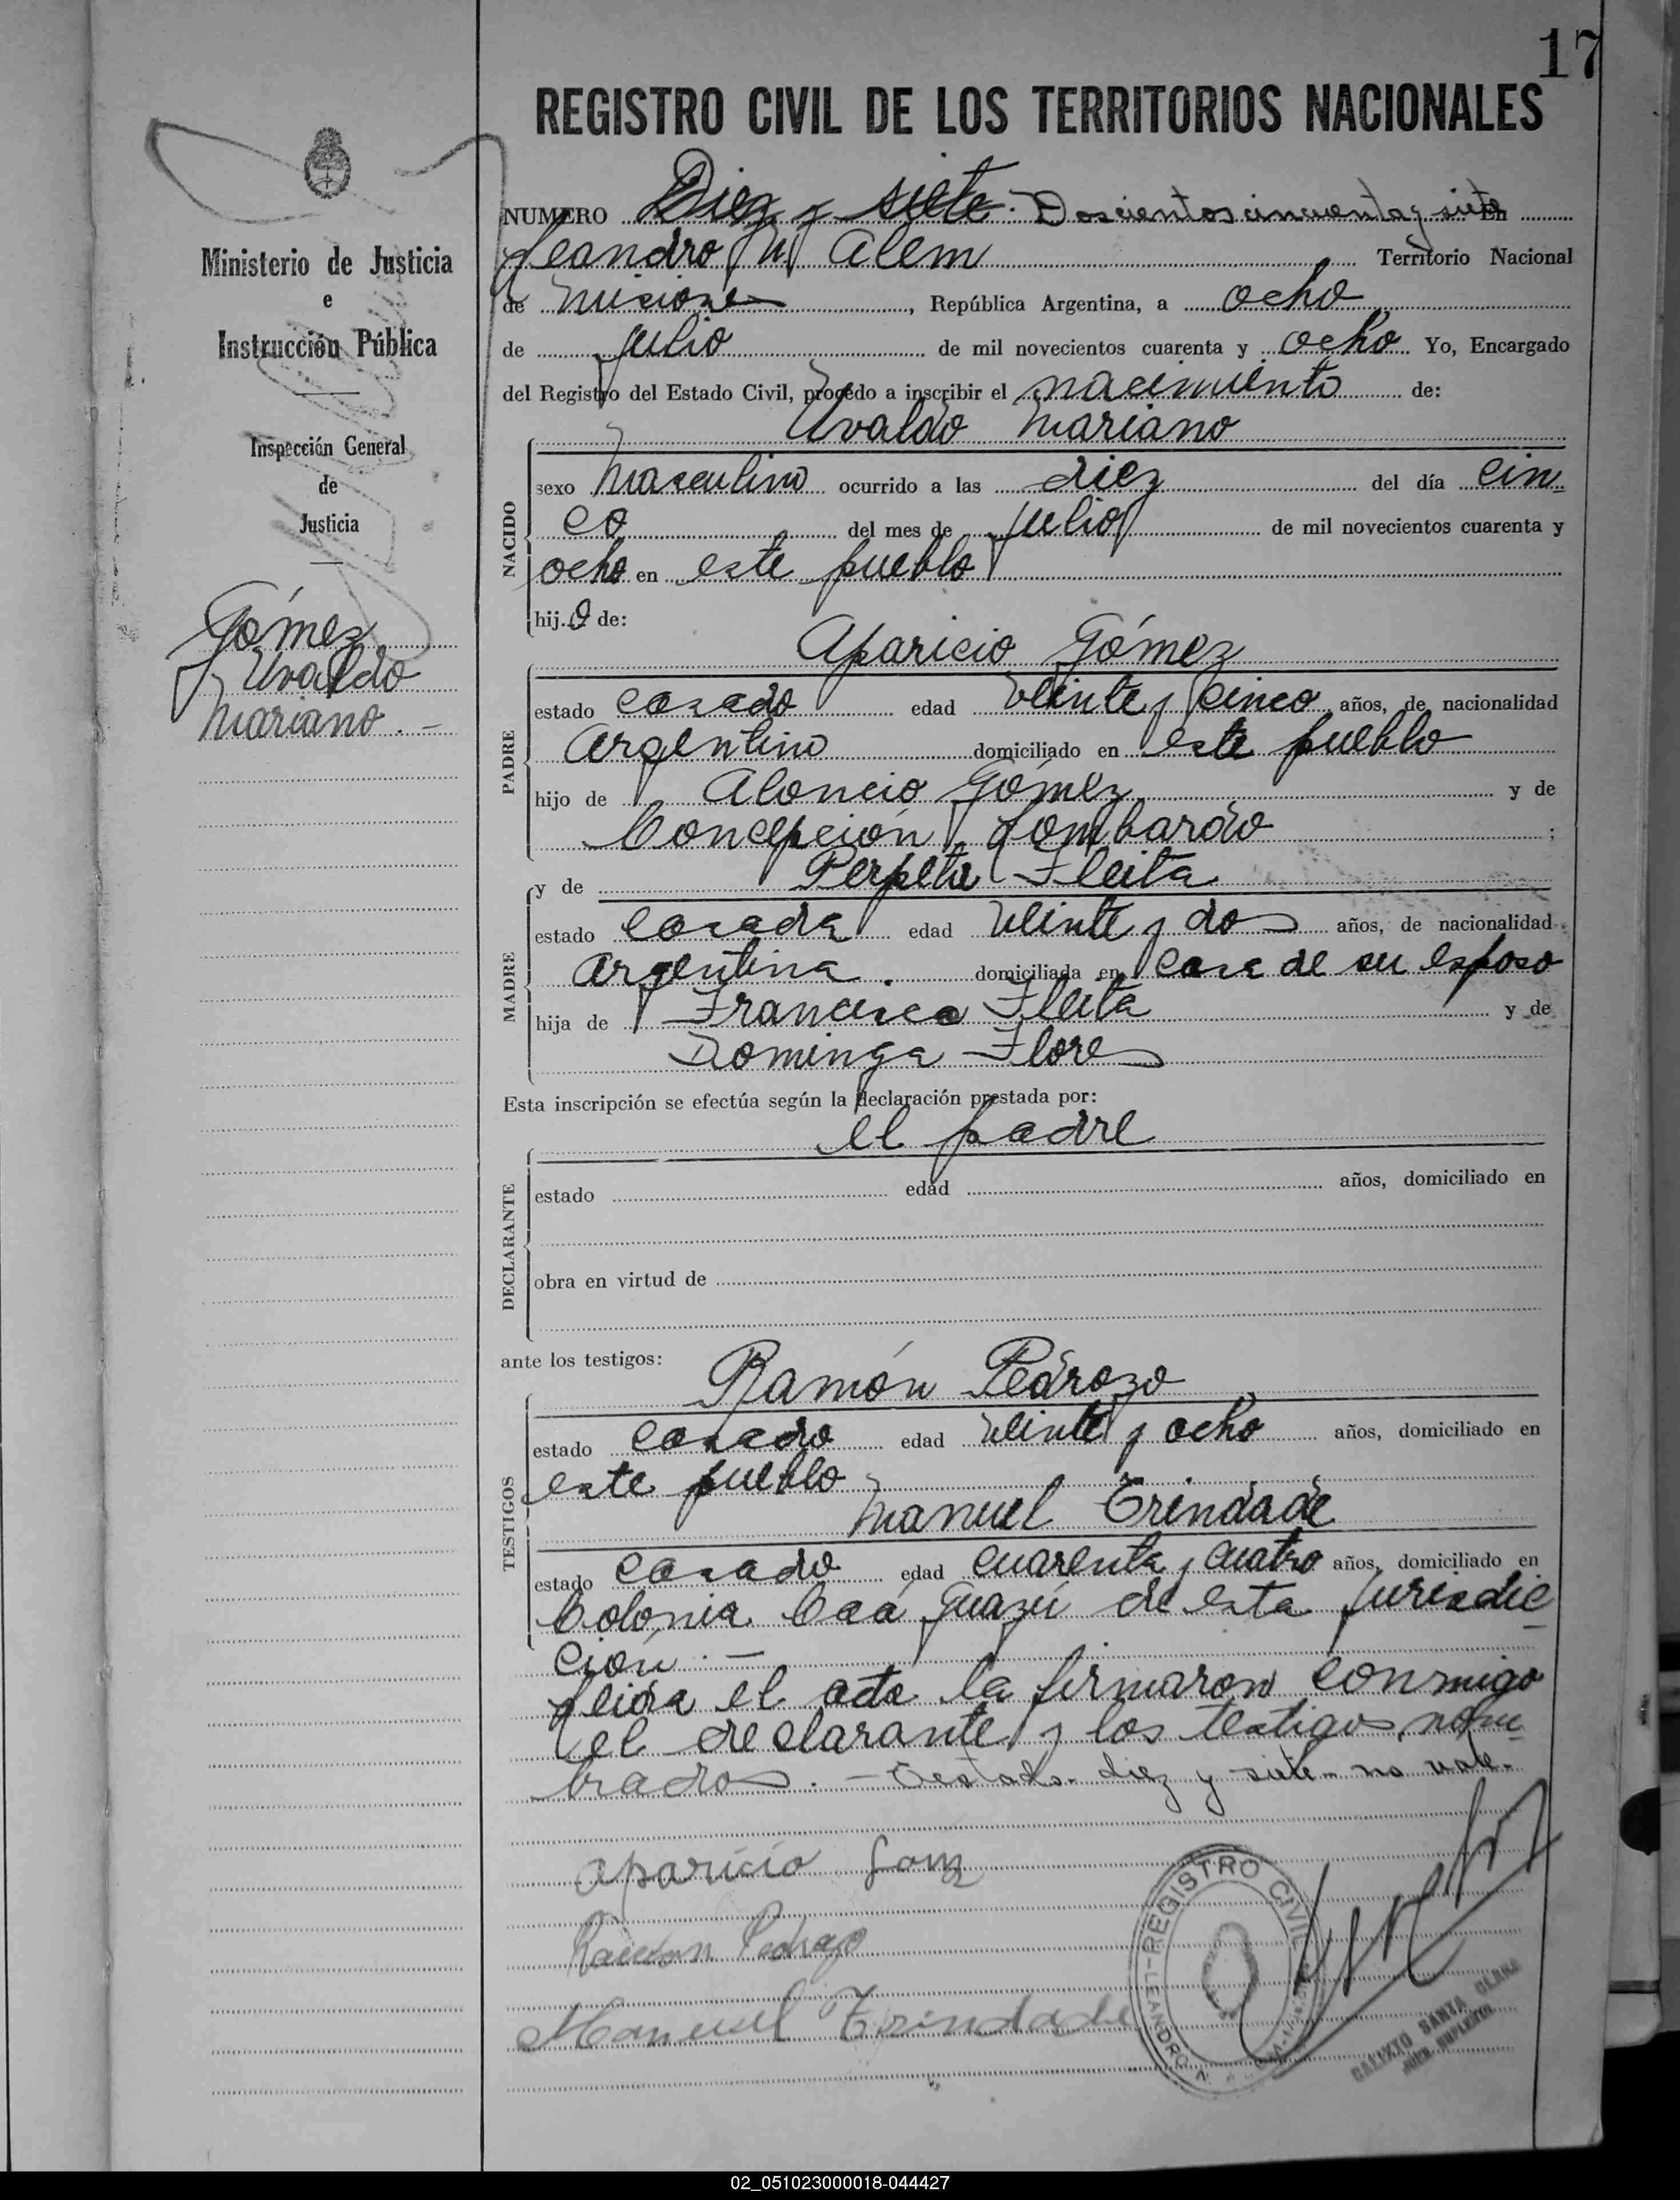 17
REGISTRO CIVIL DE LOS TERRITORIOS NACIONALES
Ministerio de Justicia
e
Instrucción Pública
Inspección General
de
Justicia
Gómez
Uvaldo
Mariano . -
NUMERO Diez y siete. Doscientos cincuenta y siete En
Leandro N Alem Territorio Nacional
de Misiones, República Argentina, a ocho
de julio de mil novecientos cuarenta y ocho Yo, Encargado
del Registro del Estado Civil, procedo a inscribir el nacimiento de:
Uvaldo Mariano
NACIDO
sexo Masculino ocurrido a las diez del día cin
co del mes de julio de mil novecientos cuarenta y
ocho en este pueblo
hijo de:
Aparicio Gómez
PADRE
estado casado edad veinte y cinco años, de nacionalidad
Argentino domiciliado en este pueblo
hijo de Aloncio Gómez y de
Concepción Lombardo ;
y de Perpetu Fleita
MADRE
estado casada edad veinte y dos años, de nacionalidad
Argentina . domiciliada en casa de su esposo
hija de Francisco Fleita y de
Dominga Flores
Esta inscripción se efectúa según la declaración prestada por:
el padre
DECLARANTE
estado edad años, domiciliado en
obra en virtud de
ante los testigos:
Ramón Pedrozo
TESTIGOS
estado casado edad veinte y ocho años, domiciliado en
este pueblo
Manuel Trindade
estado casado edad cuarenta y cuatro años, domiciliado en
Colonia Caá Guazú de esta jurisdic
ción . -
Leida el acta la firmaron conmigo
el declarante y los testigos nom
brados . - Testado - diez y siete - no vale -
Aparicio Gomz
Ramon Pedrozo
Manuel Trindade
REGISTRO CIVIL
LEANDRO N.
CALIXTO SANTA CLARA
JUEZ SUPLENTE
02_051023000018-044427